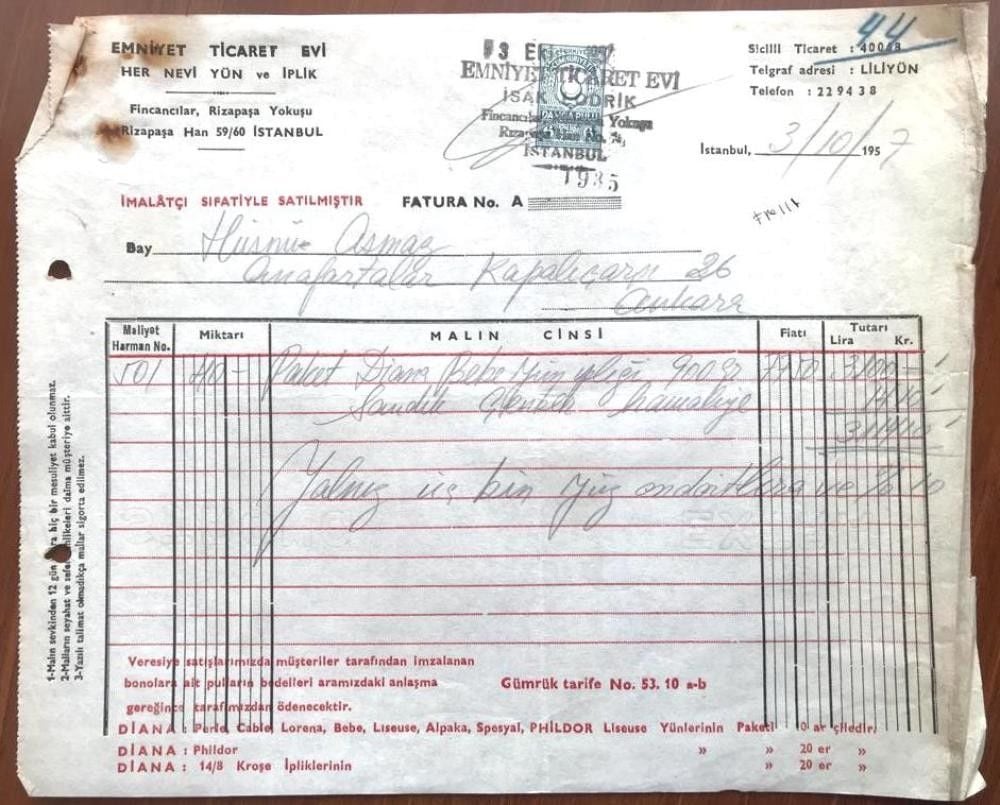 EMNİYET TİCARET EVİ
HER NEVİ YÜN ve İPLİK
Fincancılar, Rizapaşa Yokuşu
Rizapaşa Han 59/60 İSTANBUL
3 EK
EMNİYET TİCARET EVİ
İSAK
Fincancılar Yokuşu
Rızapaşa Han No.
İSTANBUL
1935
44
Sicilli Ticaret : 40048
Telgraf adresi : LİLİYÜN
Telefon : 229438
İstanbul, 3/10/1957
İMALÂTÇI SIFATİYLE SATILMIŞTIR
FATURA No. A
Bay Hüsnü Asmaz
Anafartalar Kapalıçarşı 26
Ankara
Maliyet Harman No. Miktarı MALIN CİNSİ Fiatı Tutarı Lira Kr.
501 Paket Diana Bebe yün ipliği 900 gr 3100
Sandık Çember hamaliye 14 10
3114 10
Yalnız üç bin yüz ondört lira ve 10
1-Malın sevkinden 12 gün sonra hiç bir mesuliyet kabul olunmaz.
2-Malların seyahat ve sefer tehlikeleri daima müşteriye aittir.
3-Yazılı talimat olmadıkça mallar sigorta edilmez.
Veresiye satışlarımızda müşteriler tarafından imzalanan
bonolara ait pulların bedelleri aramızdaki anlaşma
gereğince tarafımızdan ödenecektir.
Gümrük tarife No. 53. 10 a-b
DİANA : Perle, Cable, Lorena, Bebe, Liseuse, Alpaka, Spesyal, PHİLDOR Liseuse Yünlerinin Paketi 10 ar çiledir.
DİANA : Phildor » » 20 er »
DİANA : 14/8 Kroşe İpliklerinin » » 20 er »